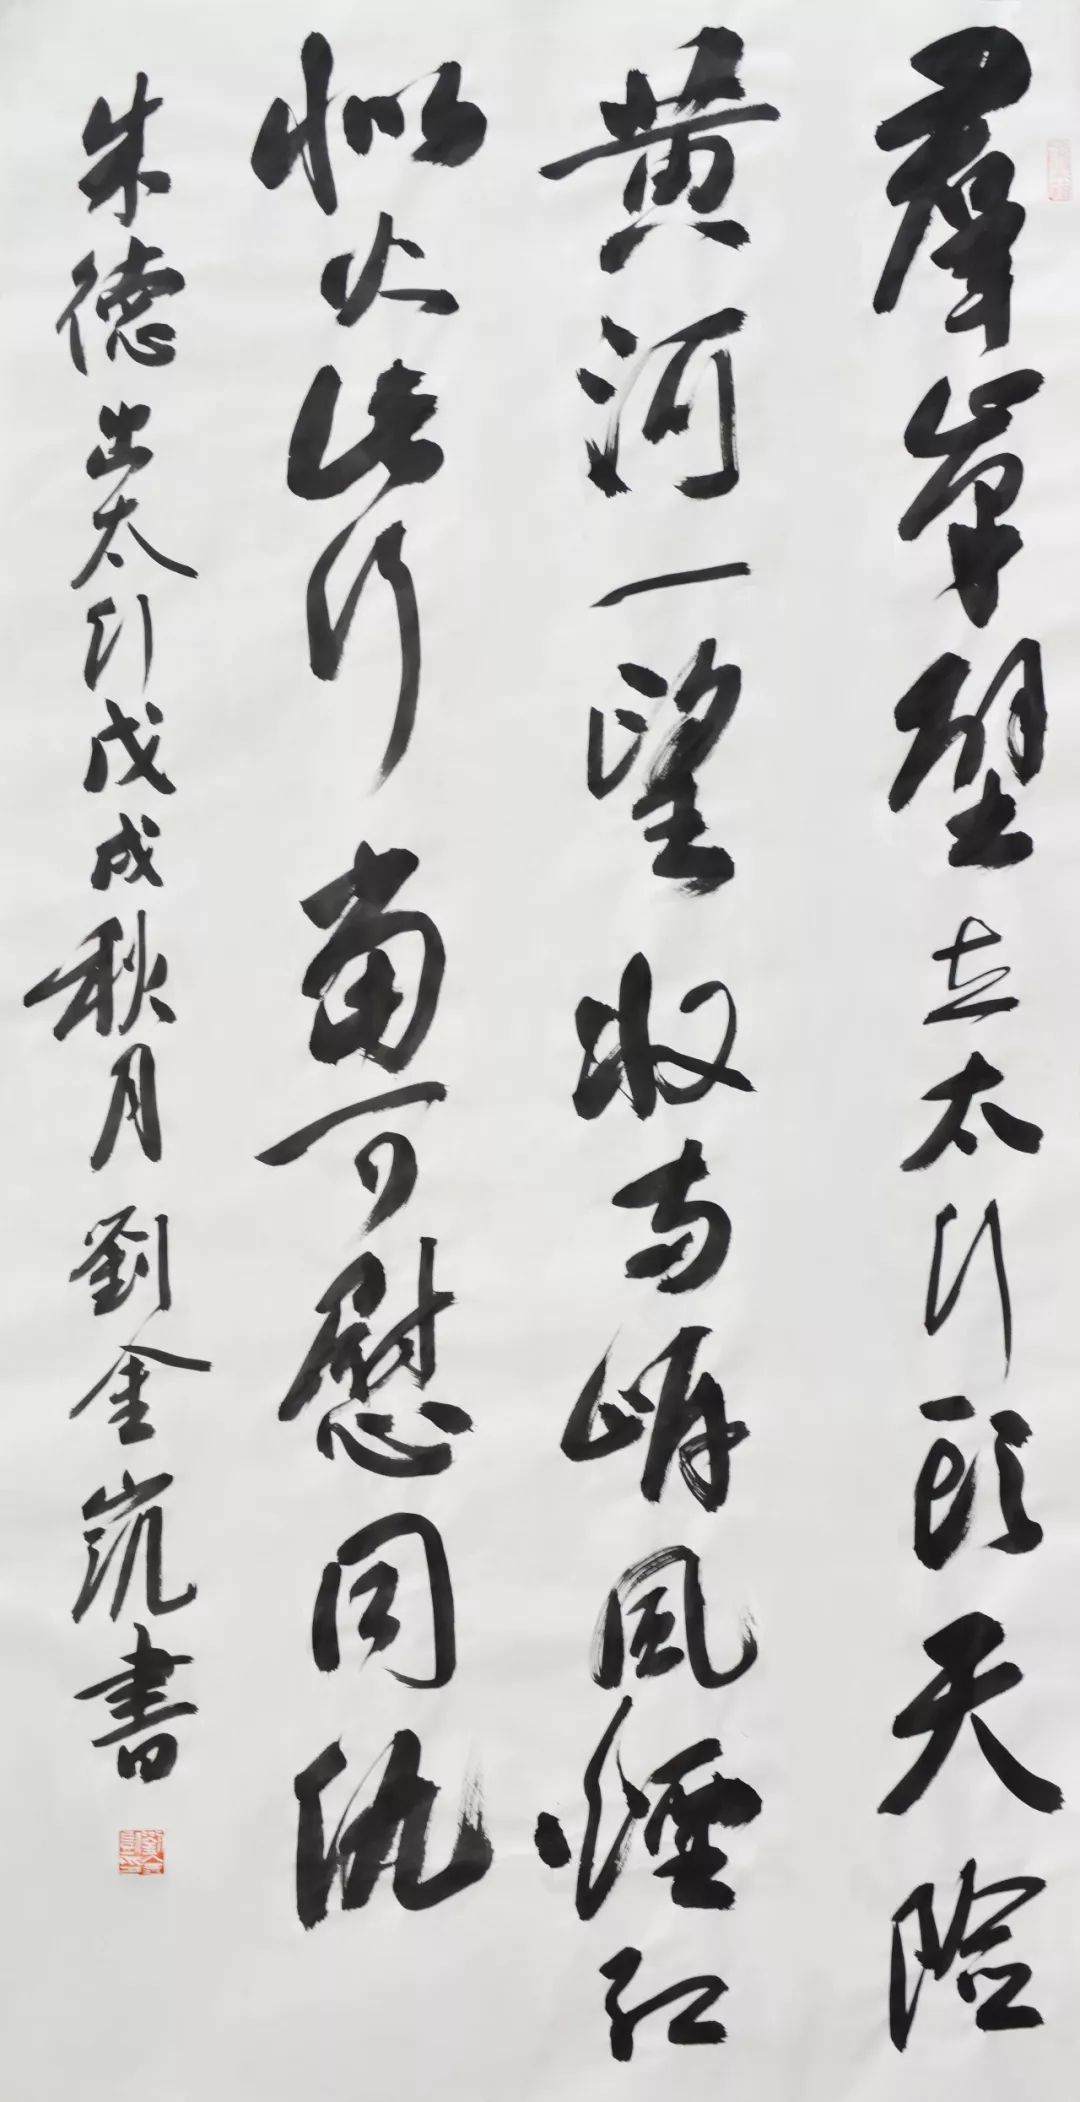 羣峯壁立太行頭天險
黄河一望收兩岸風煙紅
似火此行當可慰同仇
朱德出太行戊戌秋月劉金凱書